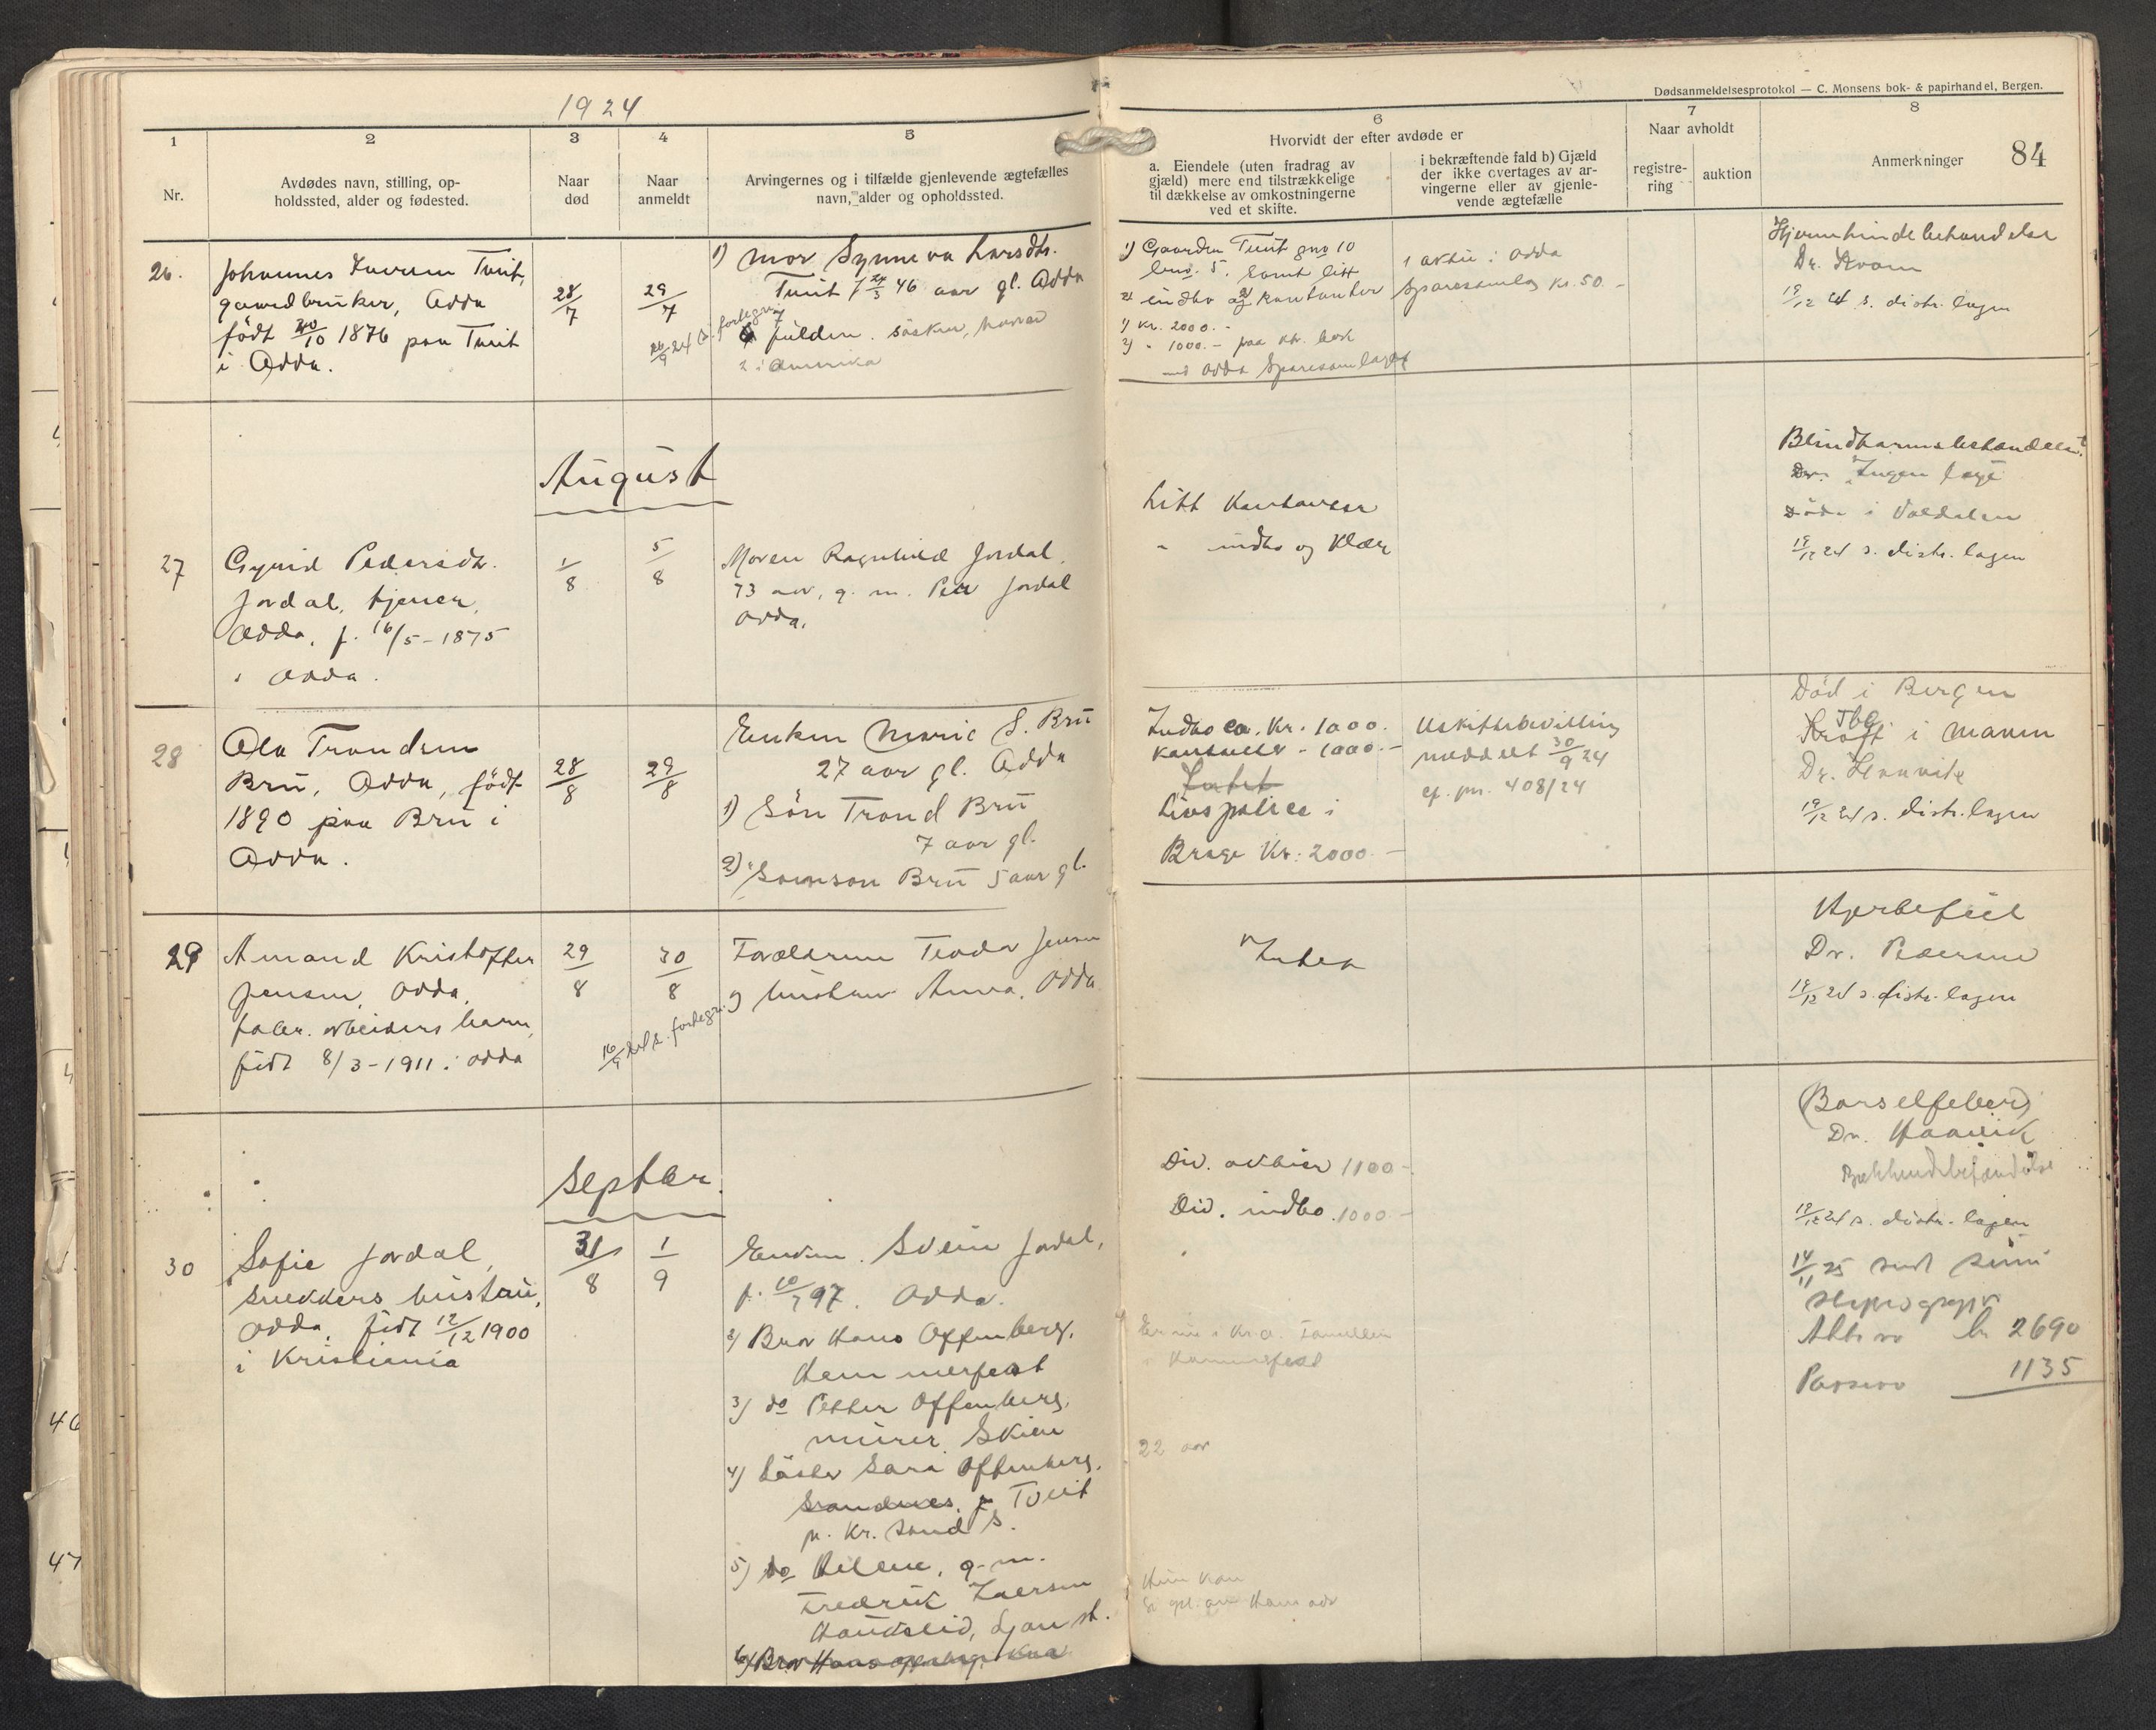 1924
Dødsanmeldelsesprotokol — C. Monsens bok- & papirhandel, Bergen.
84
1
Nr.
2
Avdødes navn, stilling, op-
holdssted, alder og fødested.
3
Naar
død
4
Naar
anmeldt
5
Arvingernes og i tilfælde gjenlevende ægtefælles
navn, alder og opholdssted.
6
Hvorvidt der efter avdøde er
a. Eiendele (uten fradrag av
gjæld) mere end tilstrækkelige
til dækkelse av omkostningerne
ved et skifte.
i bekræftende fald b) Gjæld
der ikke overtages av ar-
vingerne eller av gjenle-
vende ægtefælle
7
Naar avholdt
registre-
ring
auktion
8
Anmerkninger
26.
Johannes Tveit,
gaardbruker, Odda
født 30/10 1876 paa Tveit
i Odda.
28/7
29/7
1) Mor Synneva Larsdtr.
Tveit f 24/3 46 aar gl. Odda
7 søsken, hvorav
2 i Amerika
1) Gaarden Tveit gno 10
bno. 5. Samt litt
2) indbo og kontanter
1) Kr. 2000.-
2) " 1000.- paa ktr. bok
med Odda Sparesamlag
1 aktie i Odda
Sparesamlag Kr. 50.-
Hjernehindebetændelse
Dr.
19/12 24 s. distr. lagen
August
27
Pedersdtr.
Jordal, tjener,
Odda, f. 16/5-1875
i Odda.
1/8
5/8
Moren Ragnhild Jordal,
73 aar, g. m. Per Jordal
Odda.
Litt Kontanter
" indbo og klær
Blindtarmsbetændelse.
Dr. Ingen læge
Døde i Valdalen
19/12 24 s. distr. lagen
28
Ola Trondsen
Bru, Odda, født
1890 paa Bru i
Odda.
28/8
29/8
Enken Marie S. Bru
27 aar gl. Odda
1) Søn Trond Bru
7 aar gl.
2) Samson Bru 5 aar gl.
Indbo ca. Kr. 1000.
Kontanter - 1000.-
Intet
Livspolice i
Brage Kr: 2000.-
Uskiftebevilling
meddelt 30/9 24
cf. jnr. 408/24
Død i Bergen
Tbc.
Kræft i maven
Dr.
19/12 24 s. distr. lagen
29
Amand Kristoffer
Jensen, Odda,
fabr. arbeiders barn,
født 8/3-1911 i Odda
29/8
30/8
Forældrene Teodor Jensen
og hustru Anna, Odda
Intet
Hjertefeil
Dr. Pedersen
19/12 24 s. distr. lagen
Septbr.
30
Sofie Jordal,
snekkers hustru,
Odda, født 12/12 1900
i Kristiania
31/8
1/9
Enkem. Svein Jordal,
f. 10/7 97. Odda.
2) Bror Hans Offenberg,
Hammerfest
3) do Petter Offenberg,
murer, Skien
4) Søster Sara Offenberg,
Sandnes, Tveit
p. Kr. sand S.
5) do Helene, g. m.
Fredrik
st.
6) Bror Hans Offenberg
Div. aktier 1100-
Div. indbo. 1000-
i Hammerfest
22 aar
(Barselfeber)
Dr. Haavik
19/12 24 s. distr. lagen
14/11 25
Aktiva kr 2690
Passiva 1135
46
47